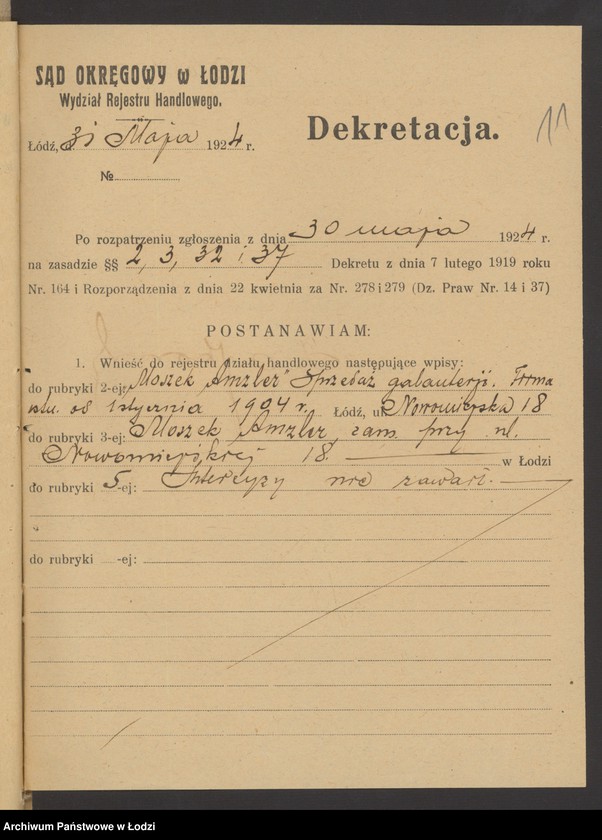 SĄD OKRĘGOWY w ŁODZI
Wydział Rejestru Handlowego.
Łódź, d. 31 Maja 1924 r.
Dekretacja.
11
№
Po rozpatrzeniu zgłoszenia z dnia 30 maja 1924 r.
na zasadzie §§ 2, 3, 32 i 37 Dekretu z dnia 7 lutego 1919 roku
Nr. 164 i Rozporządzenia z dnia 22 kwietnia za Nr. 278 i 279 (Dz. Praw Nr. 14 i 37)
POSTANAWIAM:
1. Wnieść do rejestru działu handlowego następujące wpisy:
do rubryki 2-ej: "Moszek Amzler" Sprzedaż galanterji. Firma
istn. od 1 stycznia 1904 r. Łódź, ul. Nowomiejska 18
do rubryki 3-ej: Moszek Amzler, zam. przy ul.
Nowomiejskiej 18. w Łodzi
do rubryki 5-ej: Intercyzy nie zawarł.
do rubryki -ej:
Archiwum Państwowe w Łodzi